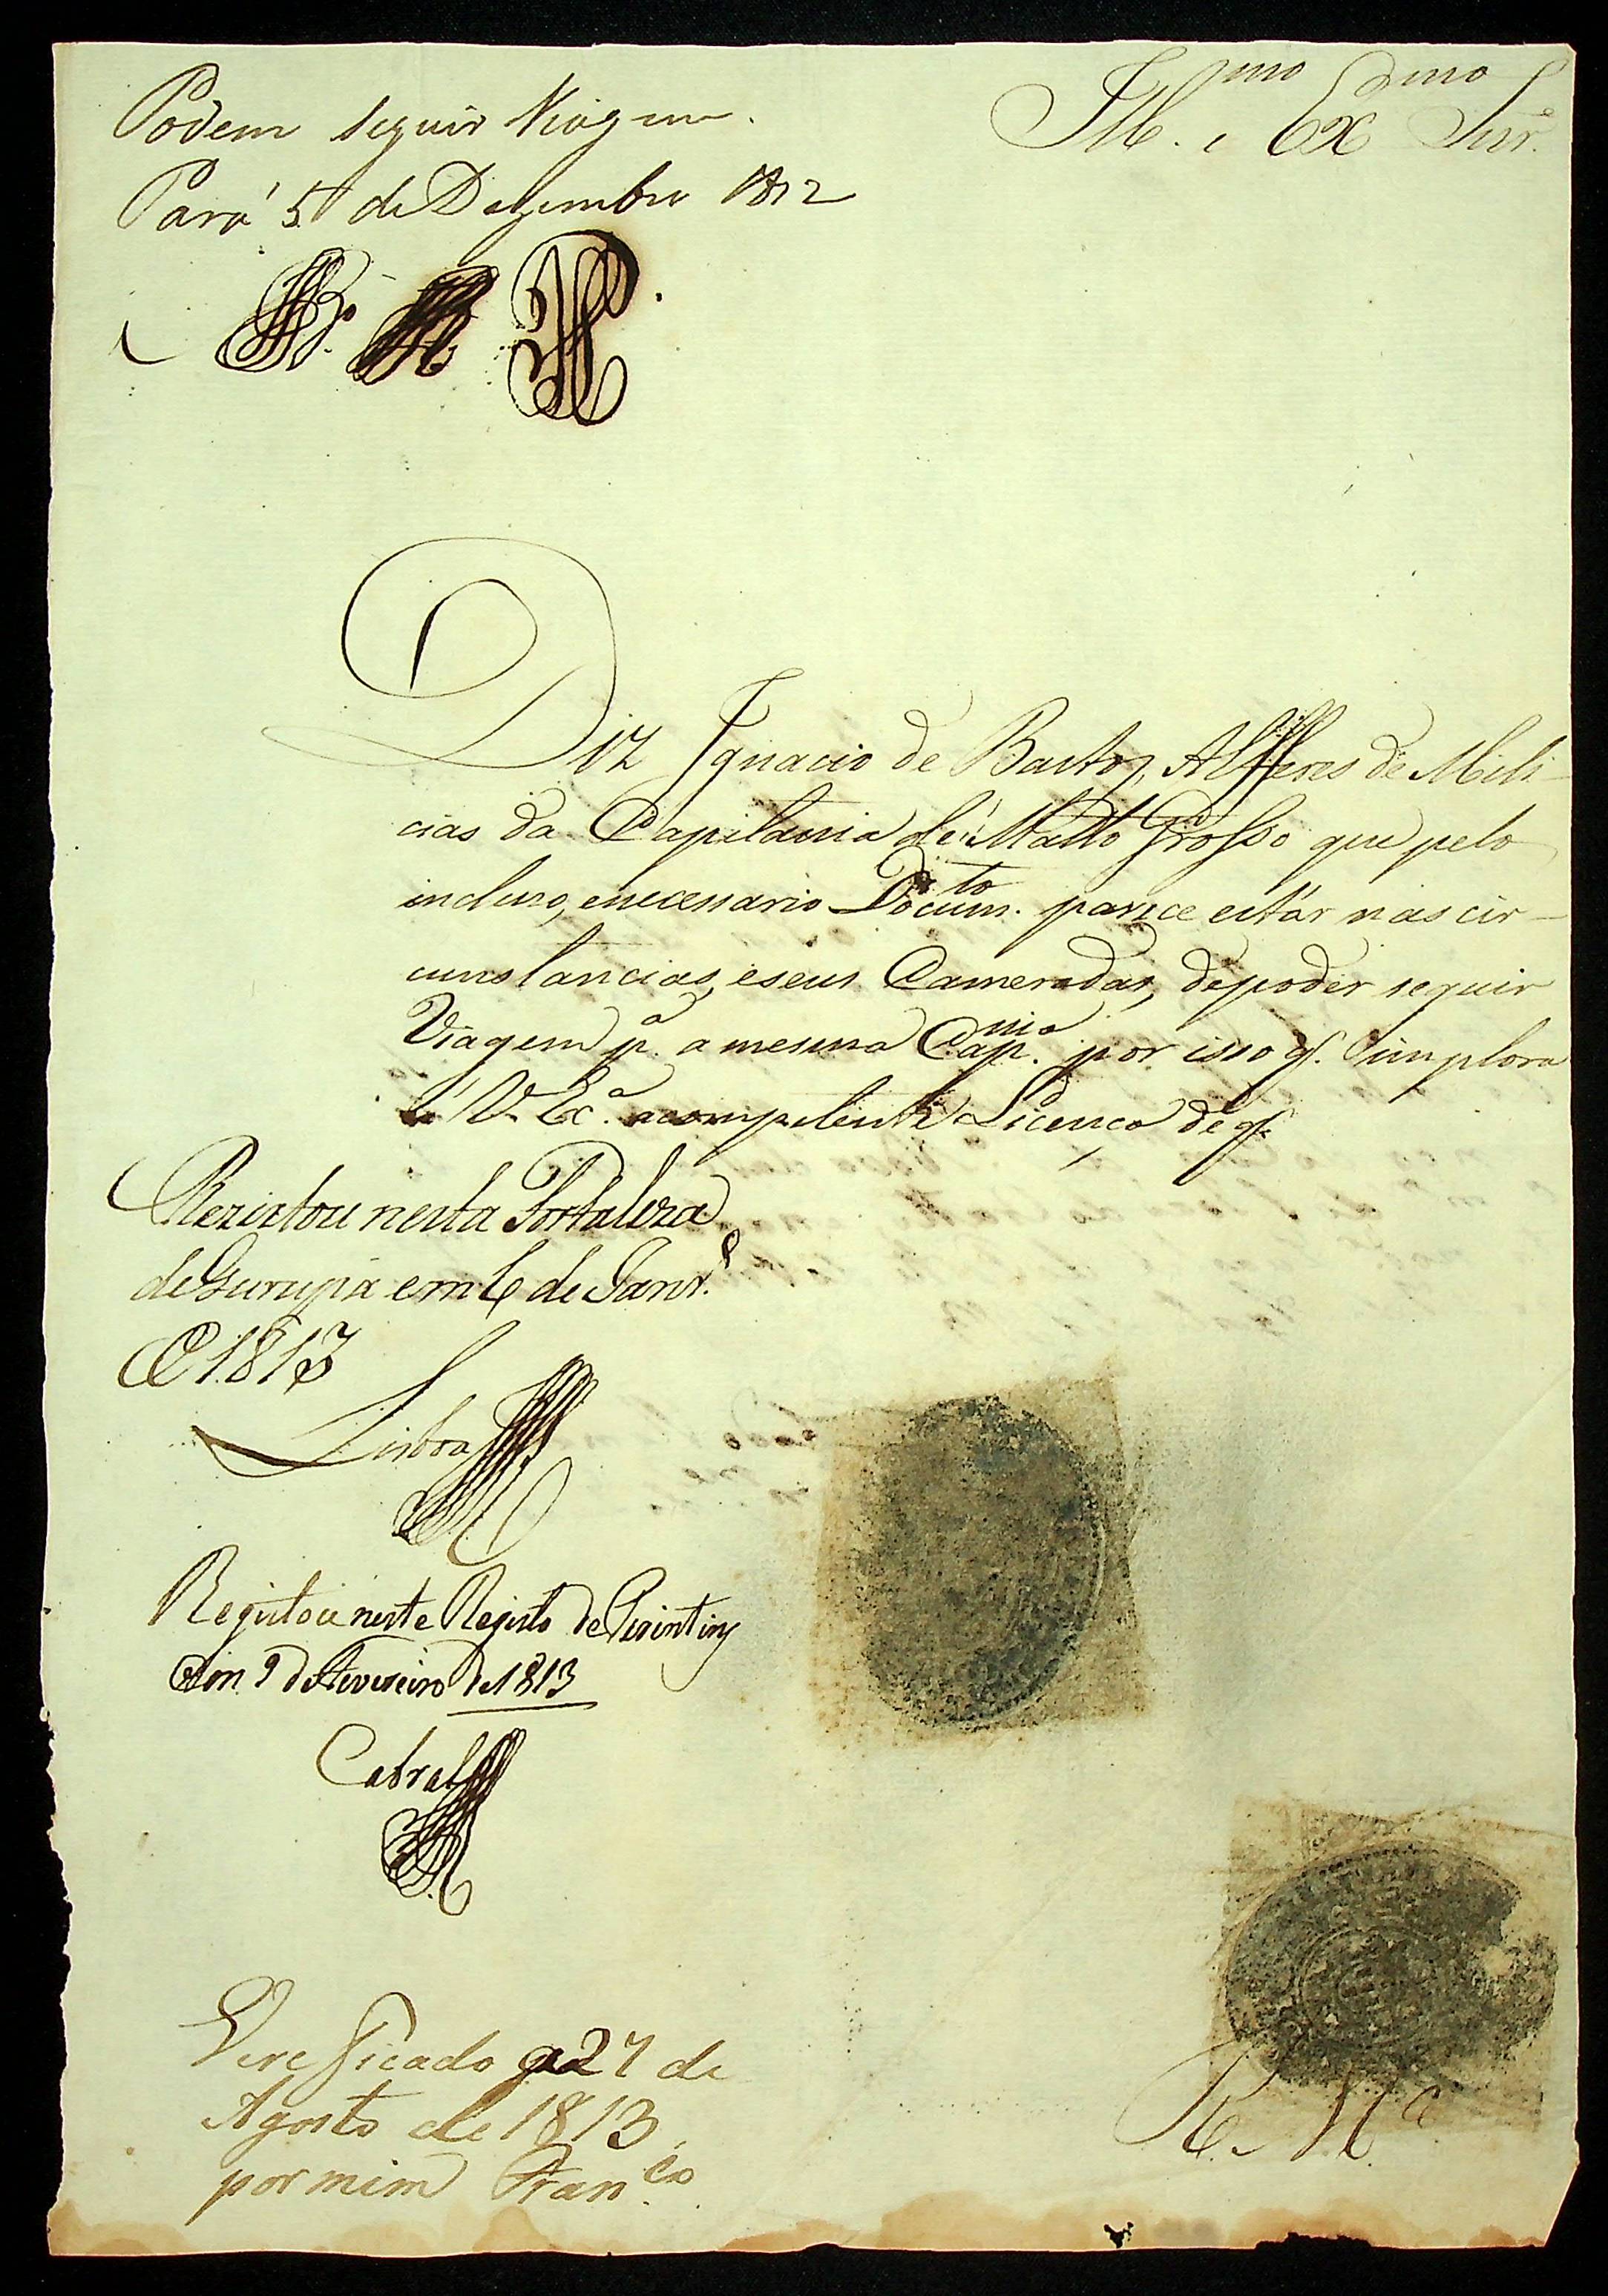 Podem seguir Viagem.
Pará 5 de Dezembro 1812
Ill.mo e Ex.mo Snr.
Diz Ignacio de Bastos, Alfferes de Mili-
cias da Capitania de Matto Grosso que pelo
incluso, enecessario Docum.to parece estár nas cir-
cunstancias, eseus Cameradas, depoder seguir
Viagem p.a a mesma Cap.nia por isso q.
a V. Ex.a acompetente Licença de q.
Rezistou nesta Fortaleza
de Gurupá em 6 de Janr.o
D 1813
Lisboa
Registou neste Registo de Parintins
em 9 de Fevereiro de 1813
Cabral
Vereficado a 27 de
Agosto de 1813
por mim Fran.co
R. M.ce